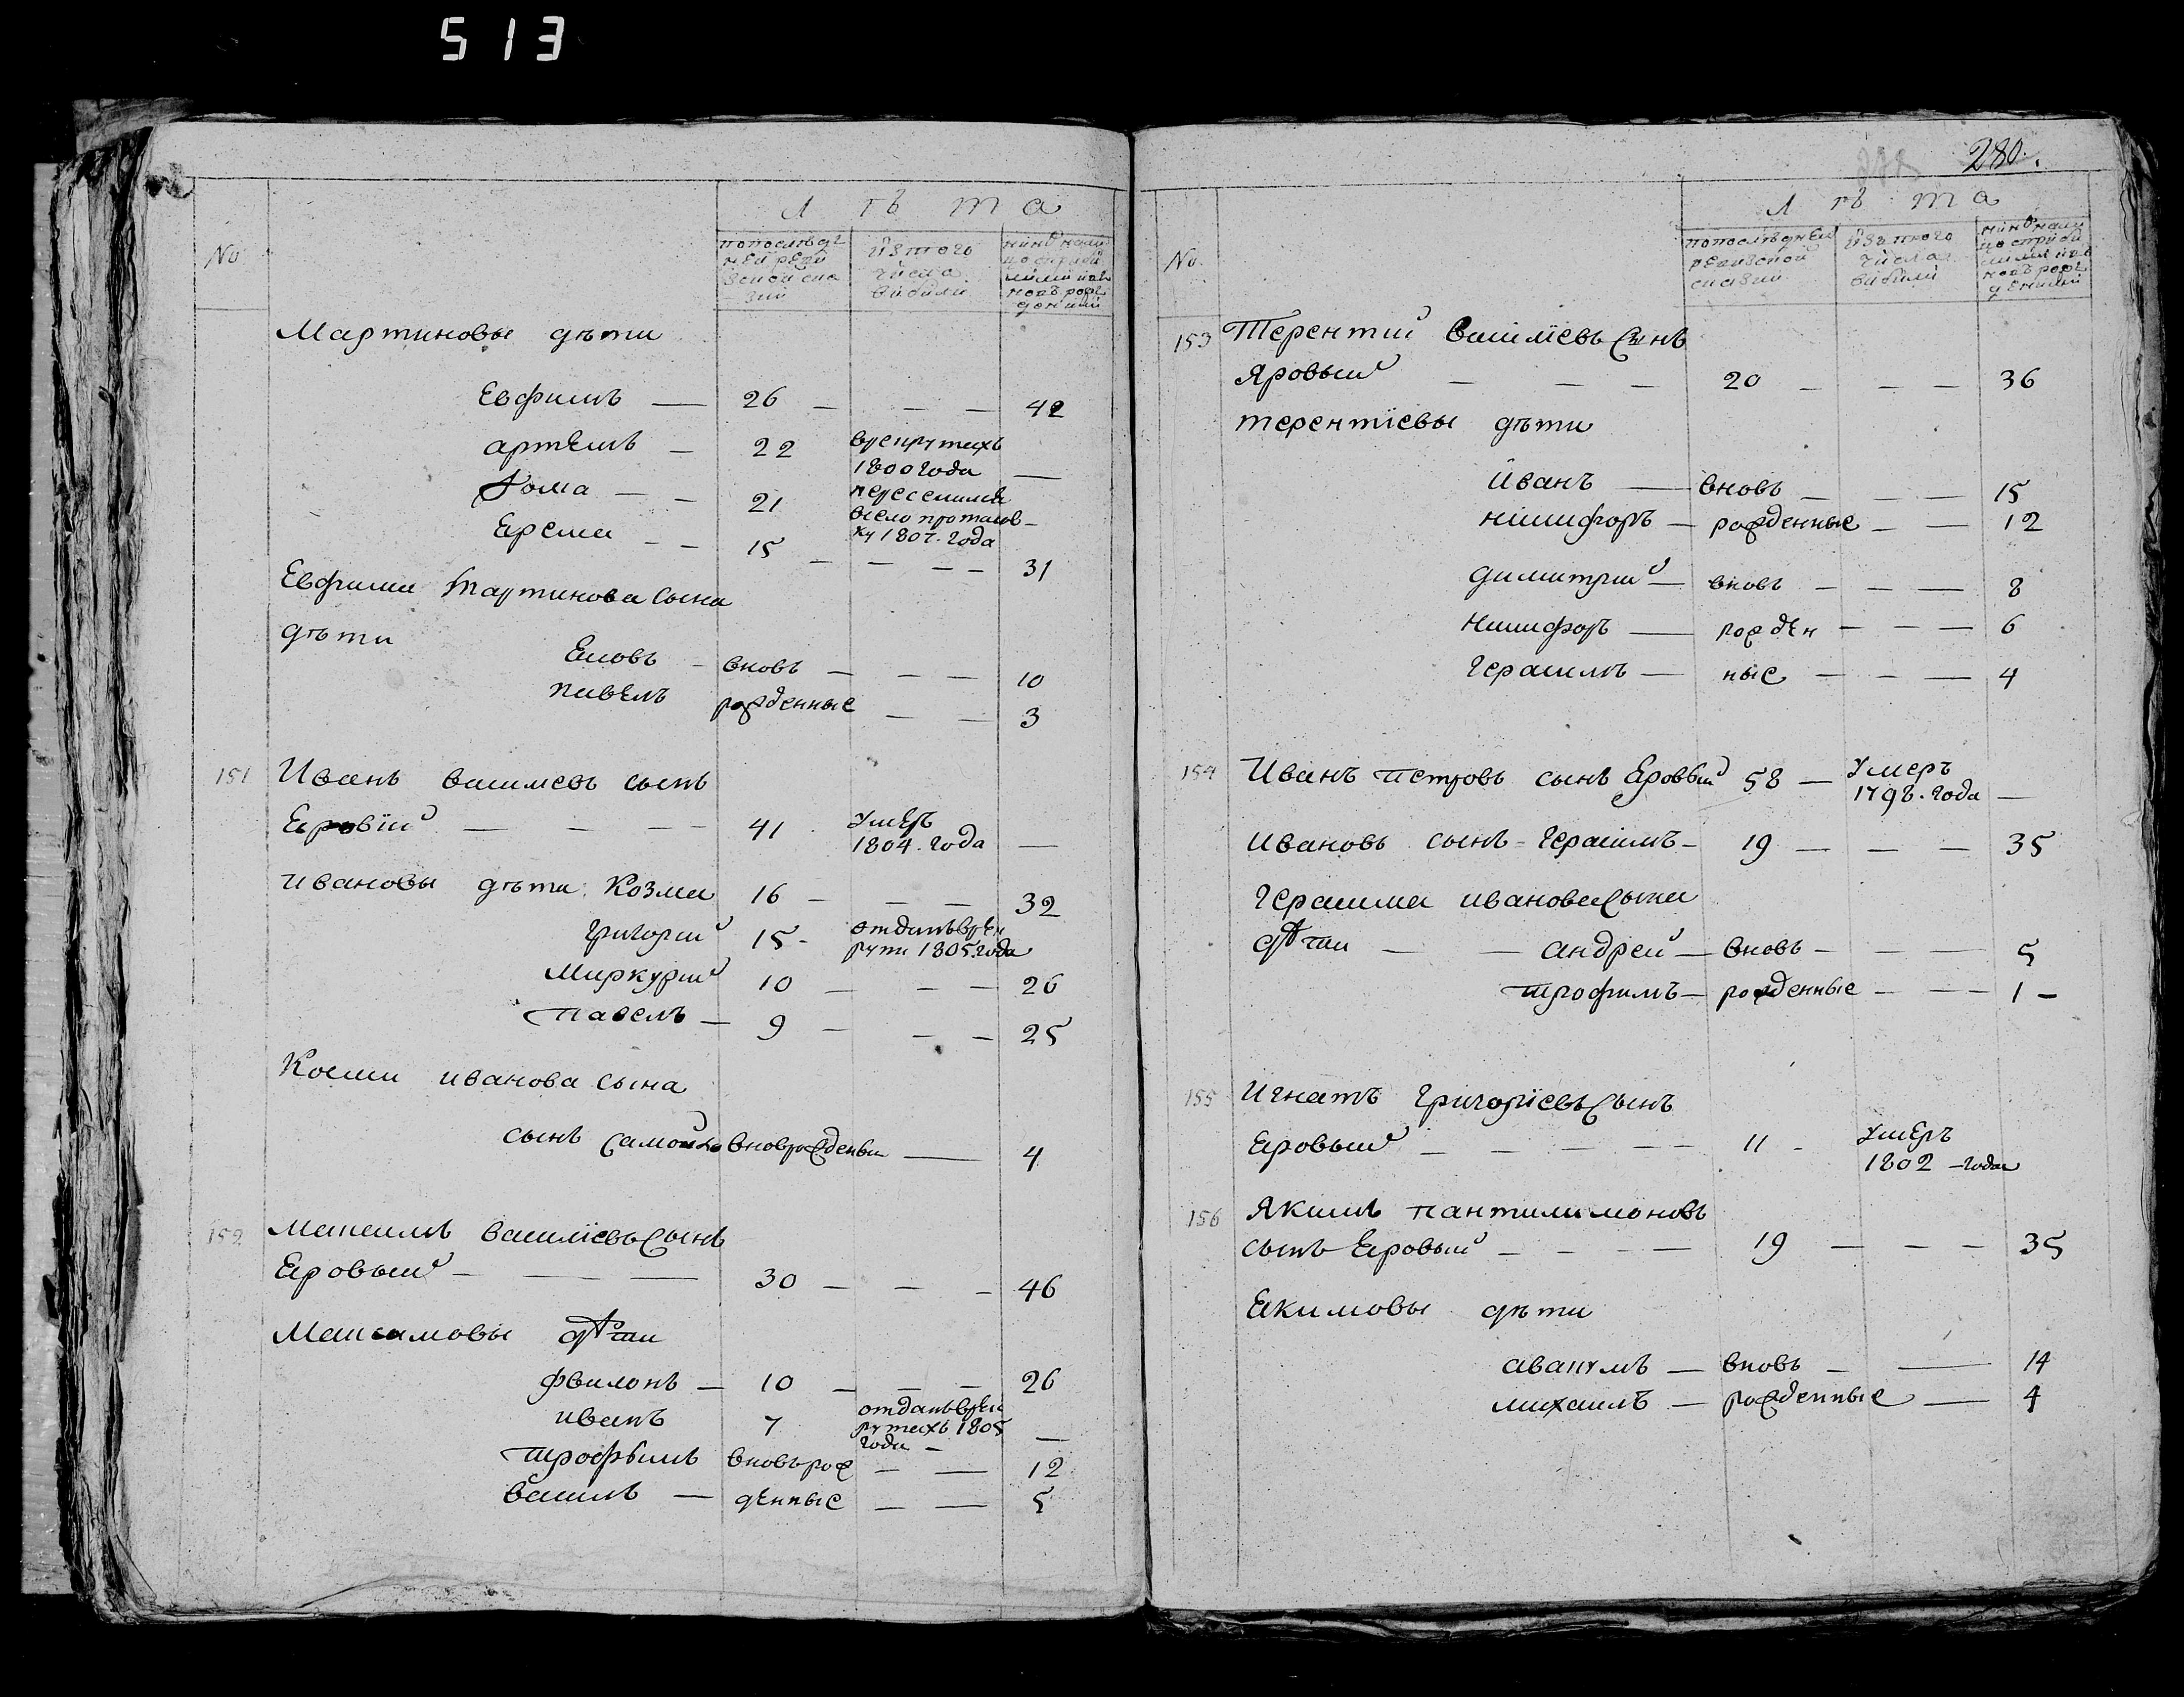 513
No
Лѣта
попослѣд
ней реви
зской ска
зки
Изтого
числа
выбыли
нынѣ нали
цо сприбы
лыми ивъ
новъ рож
денными
Мартиновы дѣти
Евфимъ — 26 — — — 42
артемъ — 22 врекрутахъ
1800 года —
Фома — — 21 переселился
всело протасов —
ку 1807. года
Ерема — — 15 — — — — 31
Евфима Мартинова сына
дѣти
Еиовъ — вновь — — — 10
павелъ рожденные — — 3
151 Иванъ василиевъ сынъ
Еровый — — — — 41 умеръ
1804. года —
ивановы дѣти Козма 16 — — — 32
григорий 15 - отданъ врек
руты 1805 года
Миркурий 10 — — — 26
Павелъ — 9 — — — 25
Косми иванова сына
сынъ Самойло вноврожденый — 4
152 Максимъ василіевъ сынъ
Еровый — — — — 30 — — — 46
Максимовы дѣти
фвилонъ — 10 — — — 26
иванъ 7 отданъ врек
рутахъ 1805
года — —
трофимъ вновьрож — — 12
василь — денные — — 5
280.
No.
Лѣта
попослѣдней
ревизской
сказки
Изътого
числа
выбыли
нынѣ нали
цо сприбы
лыми ивъ
новъ рож
денными
153 Терентий василіевъ сынъ
Яровый — — — 20 — — — 36
терентіевы дѣти
иванъ — вновь — — — 15
никифоръ — рожденные — — 12
димитрий — вновь — — — 8
никифоръ — рожден — — — 6
герасимъ — ные — — — 4
154 Иванъ Петровъ сынъ Еровый 58 — Умеръ
1798. года —
Ивановъ сынъ - Герасимъ — 19 — — — 35
Герасима иванова сына
дѣти — — андрей — вновь — — — 5
трофимъ — рожденные — — — 1 —
155 Игнатъ григоріевъ сынъ
Еровый — — — — — 11 - умеръ
1802 — года
156 Якимъ пантилимоновъ
сынъ Еровый — — — — 19 — — — 35
Екимовы дѣти
авакумъ — вновь — — 14
михаилъ — рожденные — 4